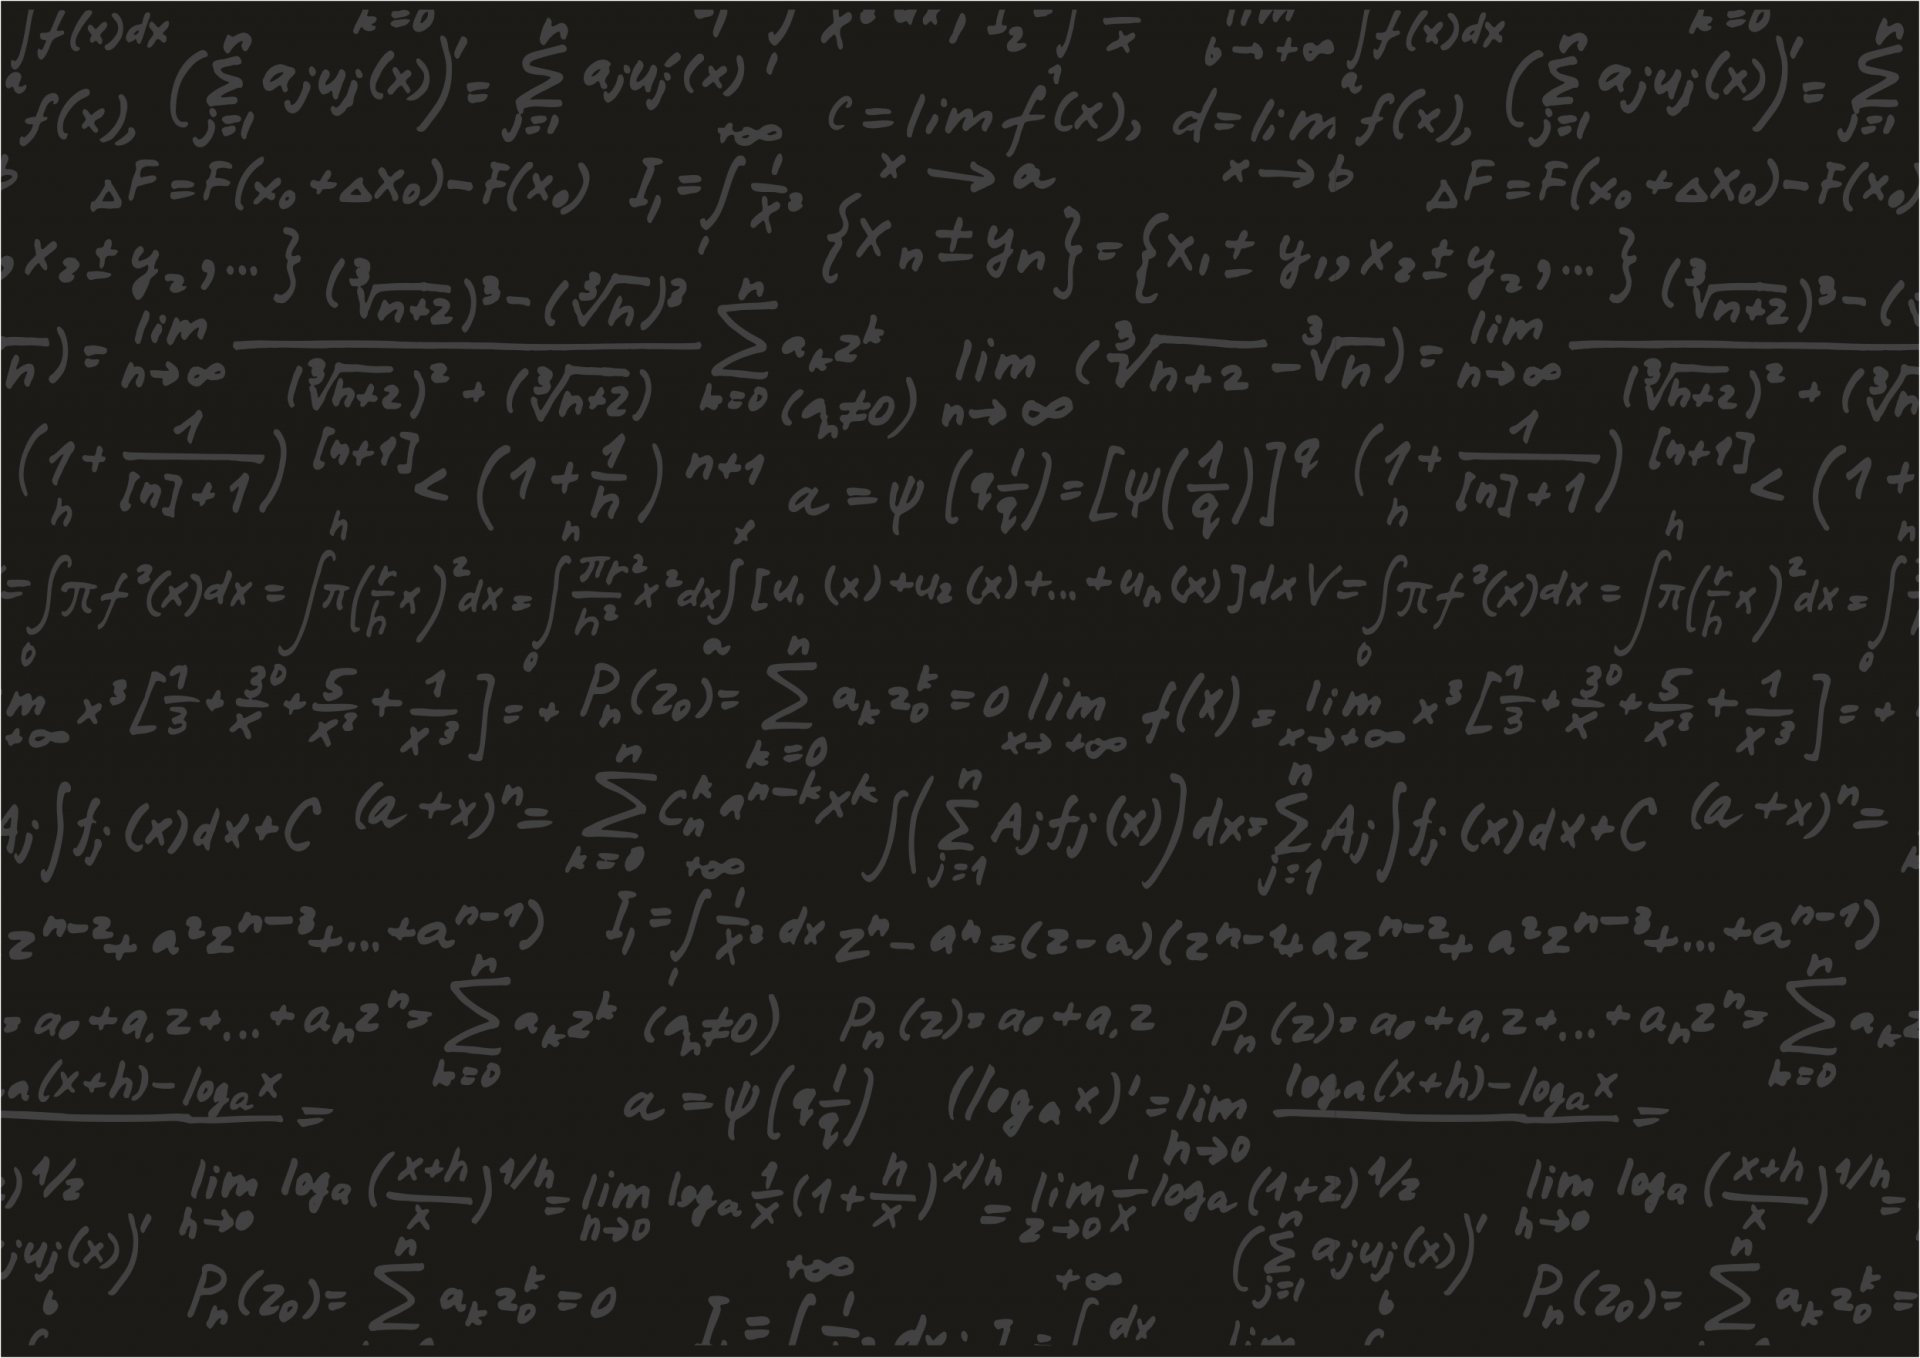 ∫f(x)dx k=0 x lim b→+∞ ∫f(x)dx k=0
a (∑ⁿ_{j=1} a_j u_j(x))' = ∑ⁿ_{j=1} a_j u_j'(x) a (∑ⁿ_{j=1} a_j u_j(x))' = ∑ⁿ_{j=1}
f(x), c = lim_{x→a} f(x), d = lim_{x→b} f(x),
b ΔF = F(x₀ + Δx₀) - F(x₀) I₁ = ∫₁^{+∞} 1/x² ΔF = F(x₀ + Δx₀) - F(x₀)
, x₂ ± y₂, ...} {x_n ± y_n} = {x₁ ± y₁, x₂ ± y₂, ...}
h) = lim_{n→∞} ((∛n+2)³ - (∛h)³)/((∛h+2)² + (∛n+2)) ∑ⁿ_{k=0} a_k z^k (a_n≠0) lim_{n→∞} (∛n+2 - ∛n) = lim_{n→∞} (∛n+2)³ - (∛h+2)² + (∛n
(1 + 1/([n]+1))^{[n+1]} < (1 + 1/n)^{n+1} a = ψ(q 1/q) = [ψ(1/q)]^q (1 + 1/([n]+1))^{[n+1]} < (1 +
= ∫₀^h πf²(x)dx = ∫^h π(r/h x)²dx = ∫₀^n πr²/h² x²dx ∫_a^x [u₁(x)+u₂(x)+...+u_n(x)]dx V = ∫₀^h πf²(x)dx = ∫^h π(r/h x)²dx = ∫₀^n
m_{+∞} x³[1/3 + 30/x + 5/x² + 1/x³] = + P_n(z₀) = ∑ⁿ_{k=0} a_k z₀^k = 0 lim_{x→+∞} f(x) = lim_{x→+∞} x³[1/3 + 30/x + 5/x² + 1/x³] = +
A_j ∫f_j(x)dx + C (a + x)ⁿ = ∑ⁿ_{k=0} C_n^k a^{n-k} x^k ∫(∑ⁿ_{j=1} A_j f_j(x))dx = ∑ⁿ_{j=1} A_j ∫f_j(x)dx + C (a + x)ⁿ =
z^{n-2} + a²z^{n-3} + ... + a^{n-1}) I₁ = ∫₁^{+∞} 1/x² dx zⁿ - aⁿ = (z - a)(z^{n-1} + az^{n-2} + a²z^{n-3} + ... + a^{n-1})
= a₀ + a₁z + ... + a_n zⁿ = ∑ⁿ_{k=0} a_k z^k (a_n≠0) P_n(z) = a₀ + a₁z P_n(z) = a₀ + a₁z + ... + a_n zⁿ = ∑ⁿ_{k=0} a_k z
a(x+h) - log_a x = a = ψ(q 1/q) (log_a x)' = lim_{h→0} log_a(x+h) - log_a x =
)^{1/z} lim_{h→0} log_a((x+h)/x)^{1/h} = lim_{n→0} log_a 1/x (1 + h/x)^{x/h} = lim_{z→0} 1/x log_a(1+z)^{1/z} lim_{h→0} log_a((x+h)/x)^{1/h} =
j u_j(x))' (∑ⁿ_{j=1} a_j u_j(x))'
b P_n(z₀) = ∑ⁿ a_k z₀^k = 0 +∞ +∞ b P_n(z₀) = ∑ⁿ a_k z₀^k =
I = ∫ 1 dx ∫ dx lim